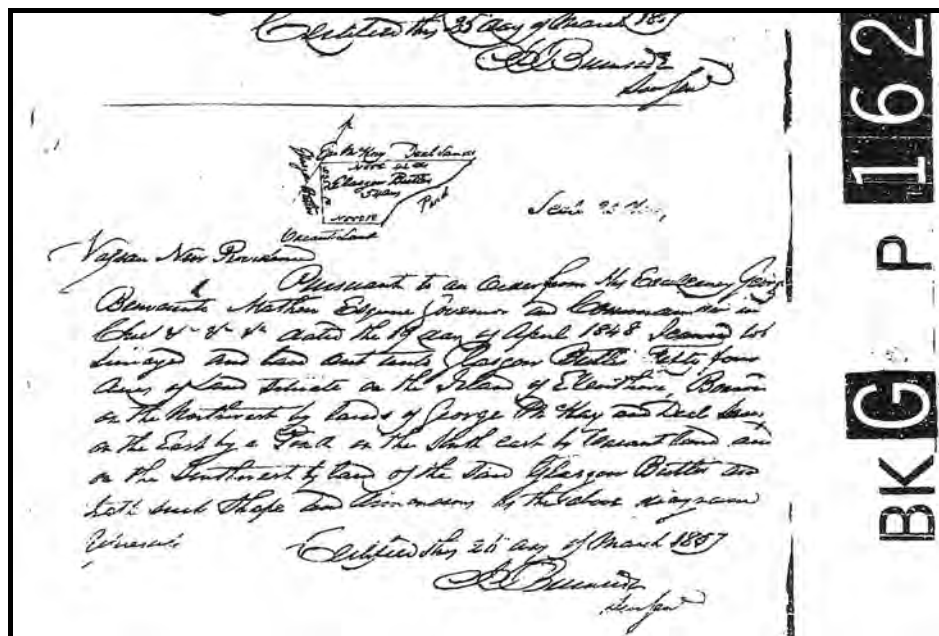 Certified this 25 day of March 1857
J J Burnside
Geo McKay Deal Sands
Glasgow Butler
54 acres
Pond
Vacant Land
Nassau New Providence
Pursuant to an Order from His Excellency George
Benvenuto Mathew Esquire Governor and Commander in
Chief &c &c &c dated the 19 day of April 1848 I have
Surveyed and laid out unto Glasgow Butler Fifty four
Acres of Land situate on the Island of Eleuthera
on the Northwest by lands of George McKay and Deal
on the East by a Pond on the South east by Vacant land and
on the Southwest by land of the said Glasgow Butler and
hath such Shape and dimensions as the above diagram
Certified this 25 day of March 1857
Burnside
BK G P 162